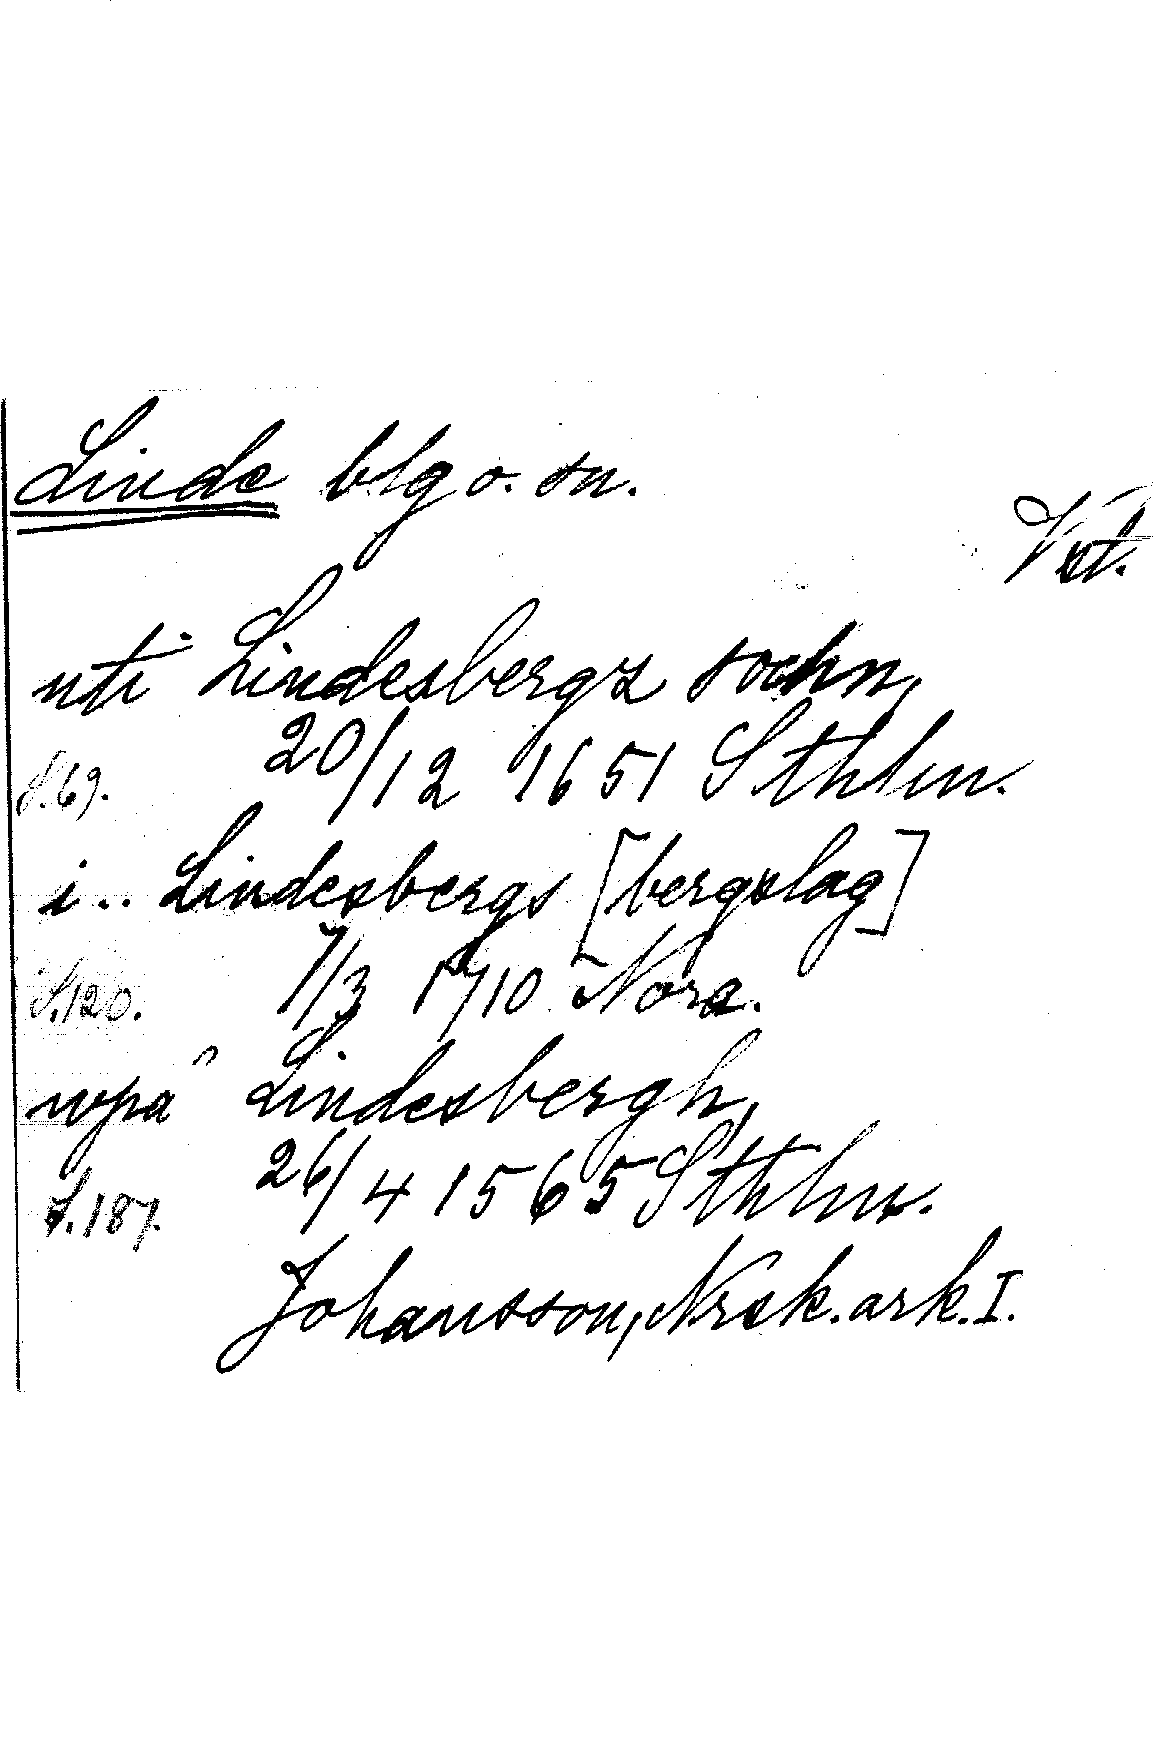 Linde blg o. sn.
Vstm.
uti Lindesbergz sochn,
S.69. 20/12 1651 Sthlm.
i .. Lindesbergs [bergslag]
S.120. 7/3 1710 Nora.
wpå Lindesbergh,
S.187. 26/4 1565 Sthlm.
Johansson, Nrsk. ark. I.